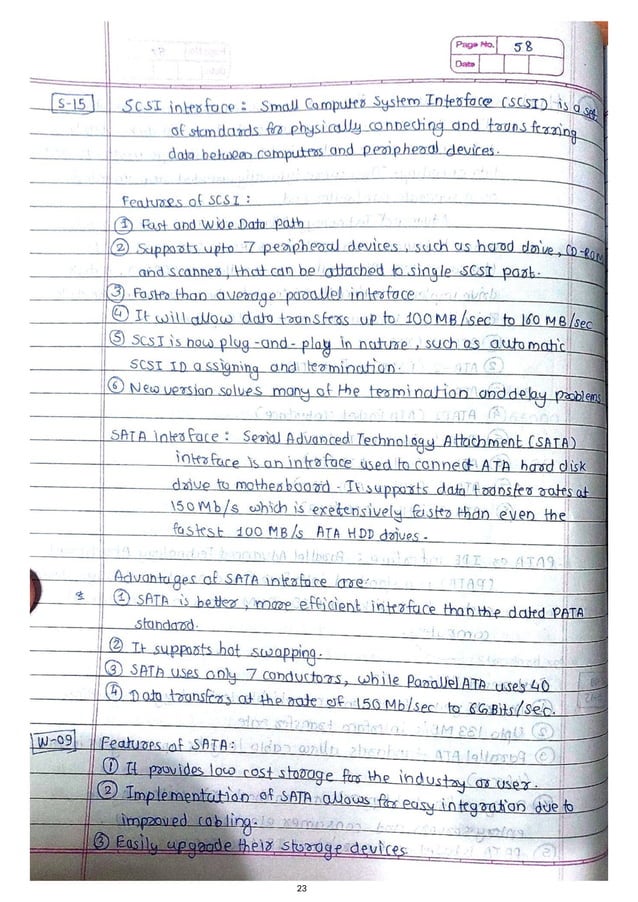 Page No. 58
Date
S-15
SCSI interface : Small Computer System Interface (SCSI) is a set
of standards for physically connecting and transferring
data between computers and peripheral devices.
Features of SCSI :
① Fast and Wide Data path
② Supports upto 7 peripheral devices, such as hard drive, CD-ROM
and scanner, that can be attached to single SCSI port.
③ Faster than average parallel interface
④ It will allow data transfers up to 100MB/sec to 160 MB/sec
⑤ SCSI is now plug-and-play in nature, such as automatic
SCSI ID assigning and termination.
⑥ New version solves many of the termination and delay problems
SATA interface : Serial Advanced Technology Attachment (SATA)
interface is an intrface used to connect ATA hard disk
drive to motherboard. It supports data transfer rates at
150Mb/s which is exetensively faster than even the
fastest 100 MB/s ATA HDD drives.
Advantages of SATA interface are:
① SATA is better, more efficient interface than the dated PATA
standard.
② It supports hot swapping.
③ SATA uses only 7 conductors, while Parallel ATA uses 40
④ Data transfers at the rate of 150 Mb/sec to 6GBits/Sec.
W-09
Features of SATA:
① It provides low cost storage for the industry or user.
② Implementation of SATA allows for easy integration due to
improved cabling.
③ Easily upgrade their storage devices
23